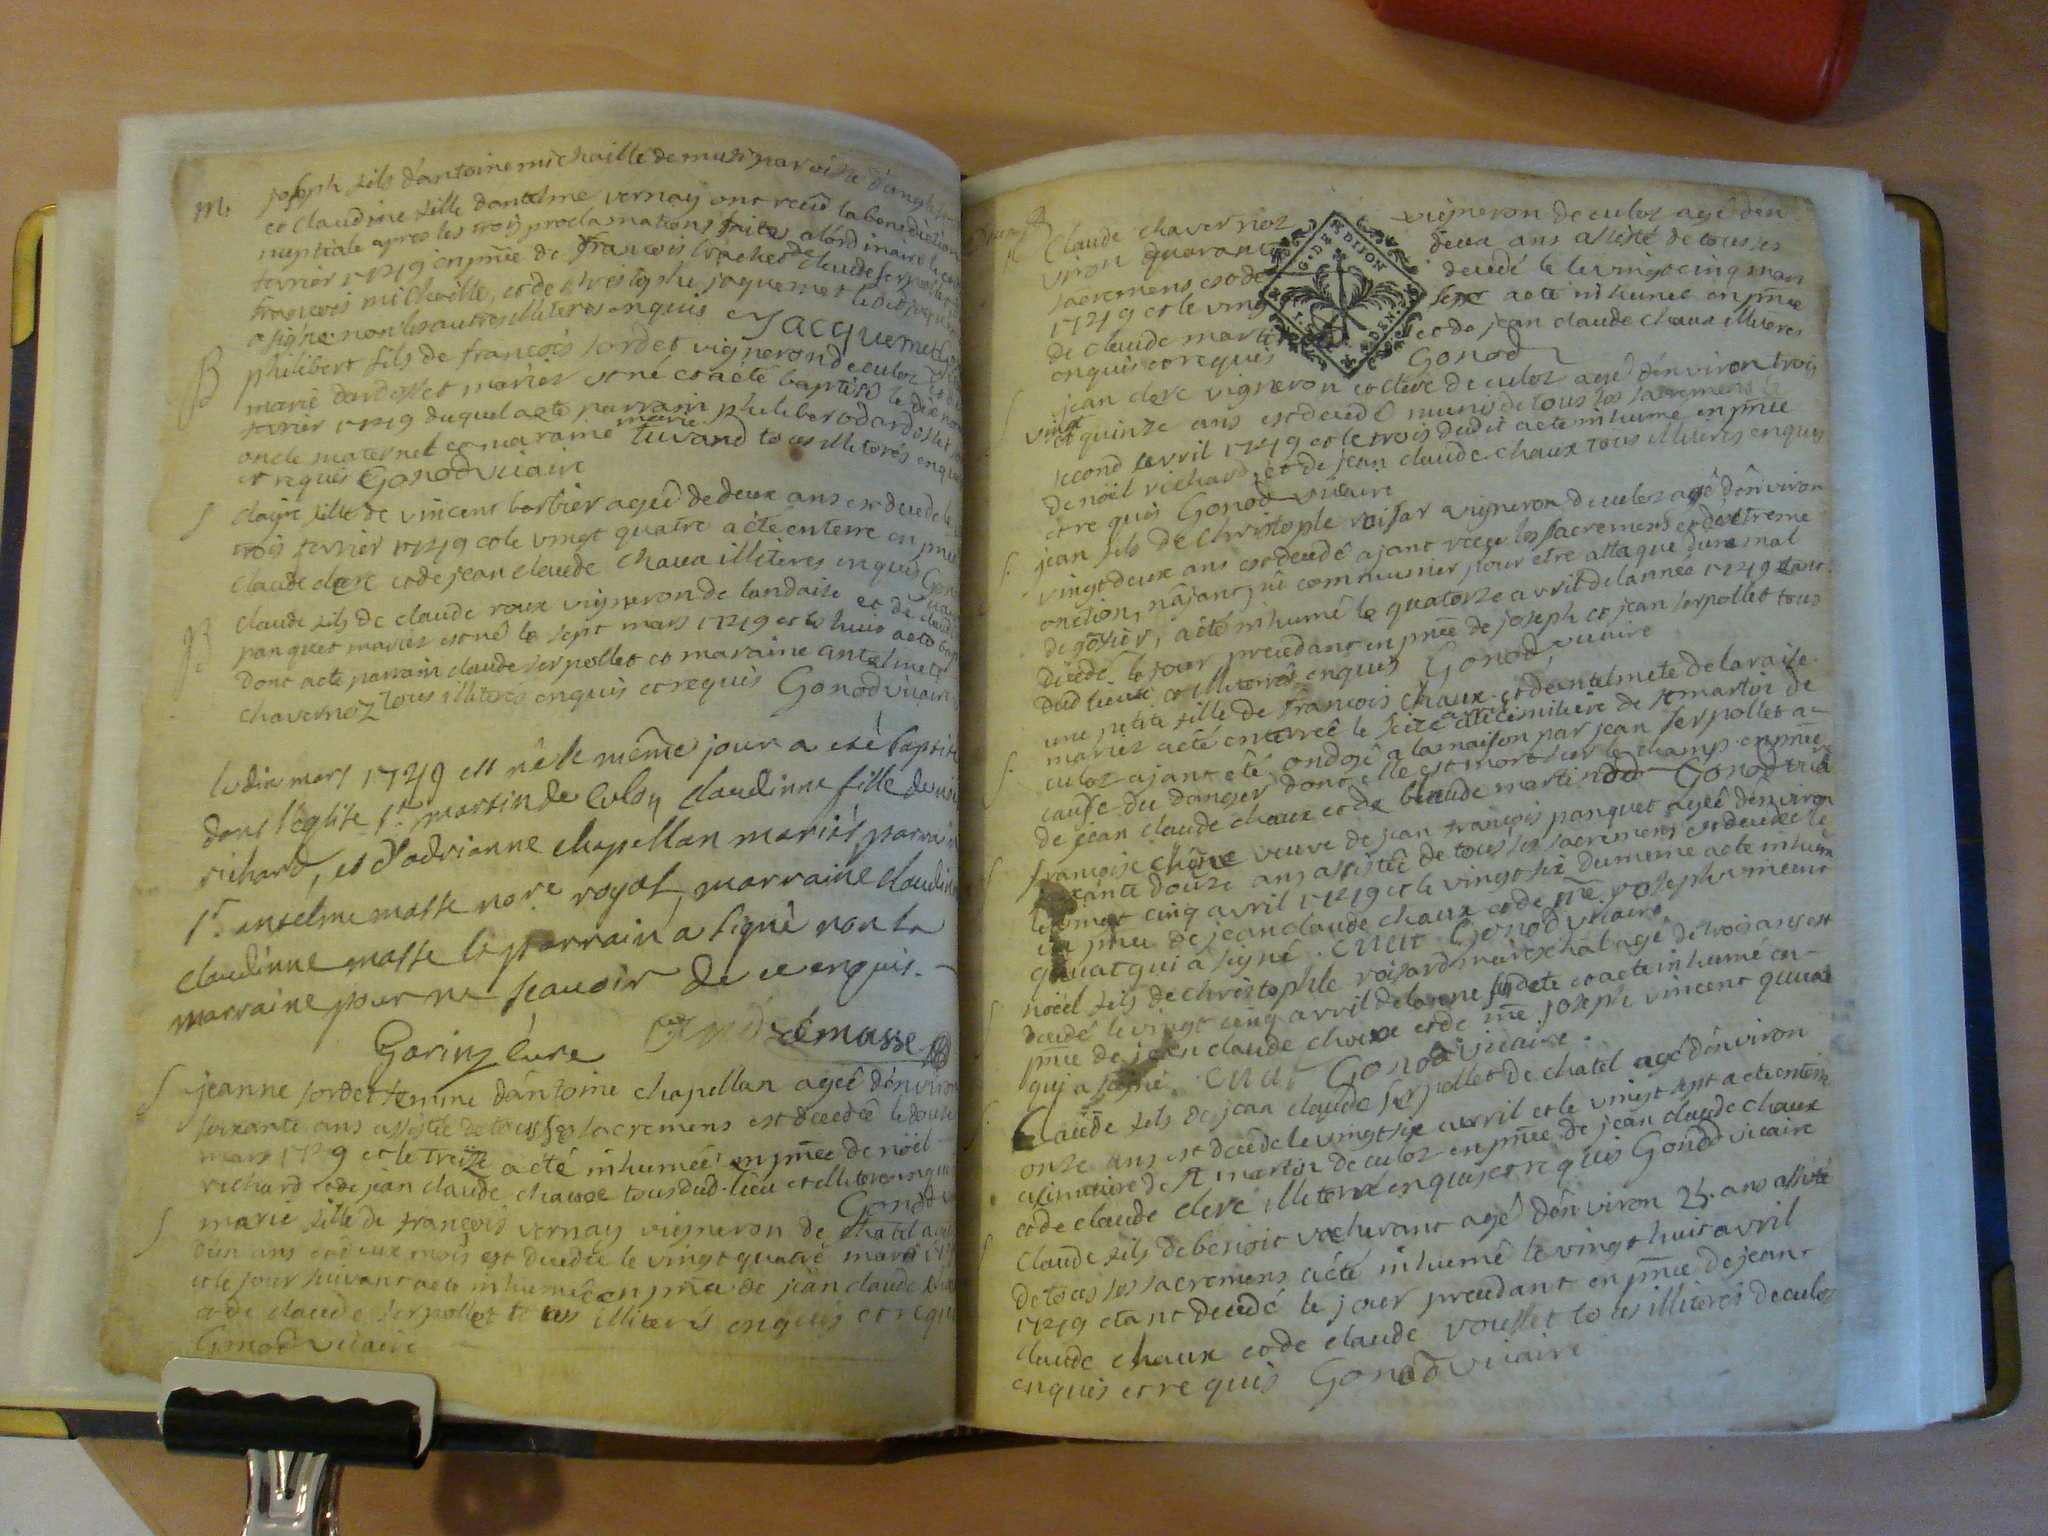 M.
joseph fils dantoine michaille de musin paroisse dangle
et claudine fille dantelme vernay ont receu la benediction
nuptiale apres les trois proclamations faites a lordinaire le
fevrier 1749 en pnce de françois brachet de claude serpollet
françois michaille, et de christophe jaquemet le dit
a signé non les autres illiteres enquis Jacquemet
B
philibert fils de françois sordet vigneron de culoz et de
marie dardillet mariez est né et a eté baptisé le dixneuf
fevrier 1749 duquel a eté parrain philibert dardillet son
oncle maternel et maraine marie tuvand tous illiteres enquis
et requis Gonod vicaire
S
claire fille de vincent barbier ageé de deux ans est decedé le
trois fevrier 1749 et le vingt quatre a eté enterre en pnce
claude clerc et de jean claude chaux illiteres enquis Gonod
B
claude fils de claude roux vigneron de landaise et de claud
panquet mariez est né le sept mars 1749 et le huit a eté bap
dont a eté parrain claude serpollet et maraine antelmete
chavernoz tous illiteres enquis et requis Gonod vicaire
le dix mars 1749 est né & le même jour a eté baptisé
dans l'eglise st martin de Culoz claudinne fille de
richard, et d'adrianne chapellan mariés parrain
sr. anselme masse nore royal, marraine claudin
claudinne masse le parrain a signé non la
marraine pour ne scavoir de ce enquis.
Gorinz Curé masse
S
jeanne sordet femme dantoine chapellan ageé denviron
soixante ans assistée de tous ses sacremens est decedeé le douze
mars 1749 et le treize a eté inhumée en pnce de noël
richard et de jean claude chaux tous dud. lieu et illiteres enquis
Gonod
S
marie fille de françois vernay vigneron de chatel ageé
dun ans et deux mois est decedée le vingt quatre mars
et le jour suivant a eté inhumée en pnce de jean claude
et de claude serpollet tous illiteres enquis et requis
Gonod vicaire
G. DE DIJON
claude chavernoz vigneron de culoz agé den
viron quarante deux ans assisté de tous ses
sacremens est decedé le vingt cinq mars
1749 et le vingt sept a eté inhumé en pnce
de claude martin et de jean claude chaux illiteres
enquis et requis Gonod
S
jean clerc vigneron et clerc de culoz agé denviron trois
vingt et quinze ans est decedé munis de tous les sacremens le
second avril 1749 et le trois dudit a eté inhumé en pnce
de noël richard, et de jean claude chaux tous illiteres enquis
et requis Gonod vicaire
S.
jean fils de christophe roisar vigneron de culoz agé denviron
vingt deux ans est decedé ajant receu les sacremens et dextreme
onction, najant pû communier pour etre attaque dun mal
de gosier, a eté inhumé le quatorze avril de lannee 1749 etant
decedé le jour precedant en pnce de joseph et jean serpollet tous
dud lieux et illiterés enquis Gonod vicaire
S.
une petite fille de françois chaux et dantelmete delaraise
mariez a eté enterreé le seize avril cimitiere de st martin de
culoz ajant eté ondoyé a la maison par jean serpollet a
cause du danger dont elle est mort sur le champs en pnce
de jean claude chaux et de claude martinod Gonod vicaire
S
françoise chêne veuve de jean françois panquet ageê denviron
soixante douze ans assistée de tous ses sacremens est decedeé le
vingt cinq avril 1749 et le vingt six du meme a eté inhum
en pnce de jean claude chaux et de me joseph vincent
guvat qui a signé. Gonod vicaire
S
noël fils de christophle roisard marechal agé de trois ans est
decedé le vingt cinq avril de lanne susdete et a eté inhumé en
pnce de jean claude chaux et de me joseph vincent guvat
qui a signé. Gonod vicaire.
S
Claude fils de jean claude serpollet de chatel agé denviron
onze ans est decedé le vingt six avril et le vingt sept a eté enterré
cimitiere de st martin de culoz en pnce de jean claude chaux
et de claude clerc illiteres enquis et requis Gonod vicaire
S
claude fils de benoit vacherant agé denviron 25. ans assisté
de tous ses sacremens a eté inhumé le vingt huit avril
1749 etant decedé le jour precedant en pnce de jean
claude chaux et de claude voullet tous illiterés de culoz
enquis et requis Gonod vicaire